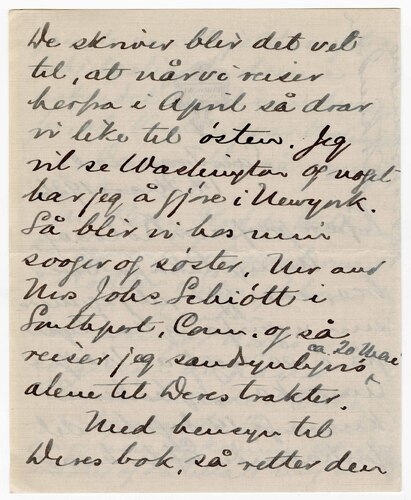 De skriver blir det vel
til, at når vi reiser
herfra i April så drar
vi like til østen. Jeg
vil se Washington og noget
har jeg å gjøre i Newyork.
Så blir vi hos min
svoger og søster, Mr and
Mrs Johs Schiött i
Southport, Conn. og så
ca. 20 Mai
reiser jeg sandsynligvis
alene til Deres trakter.
Med hensyn til
Deres bok, så retter den